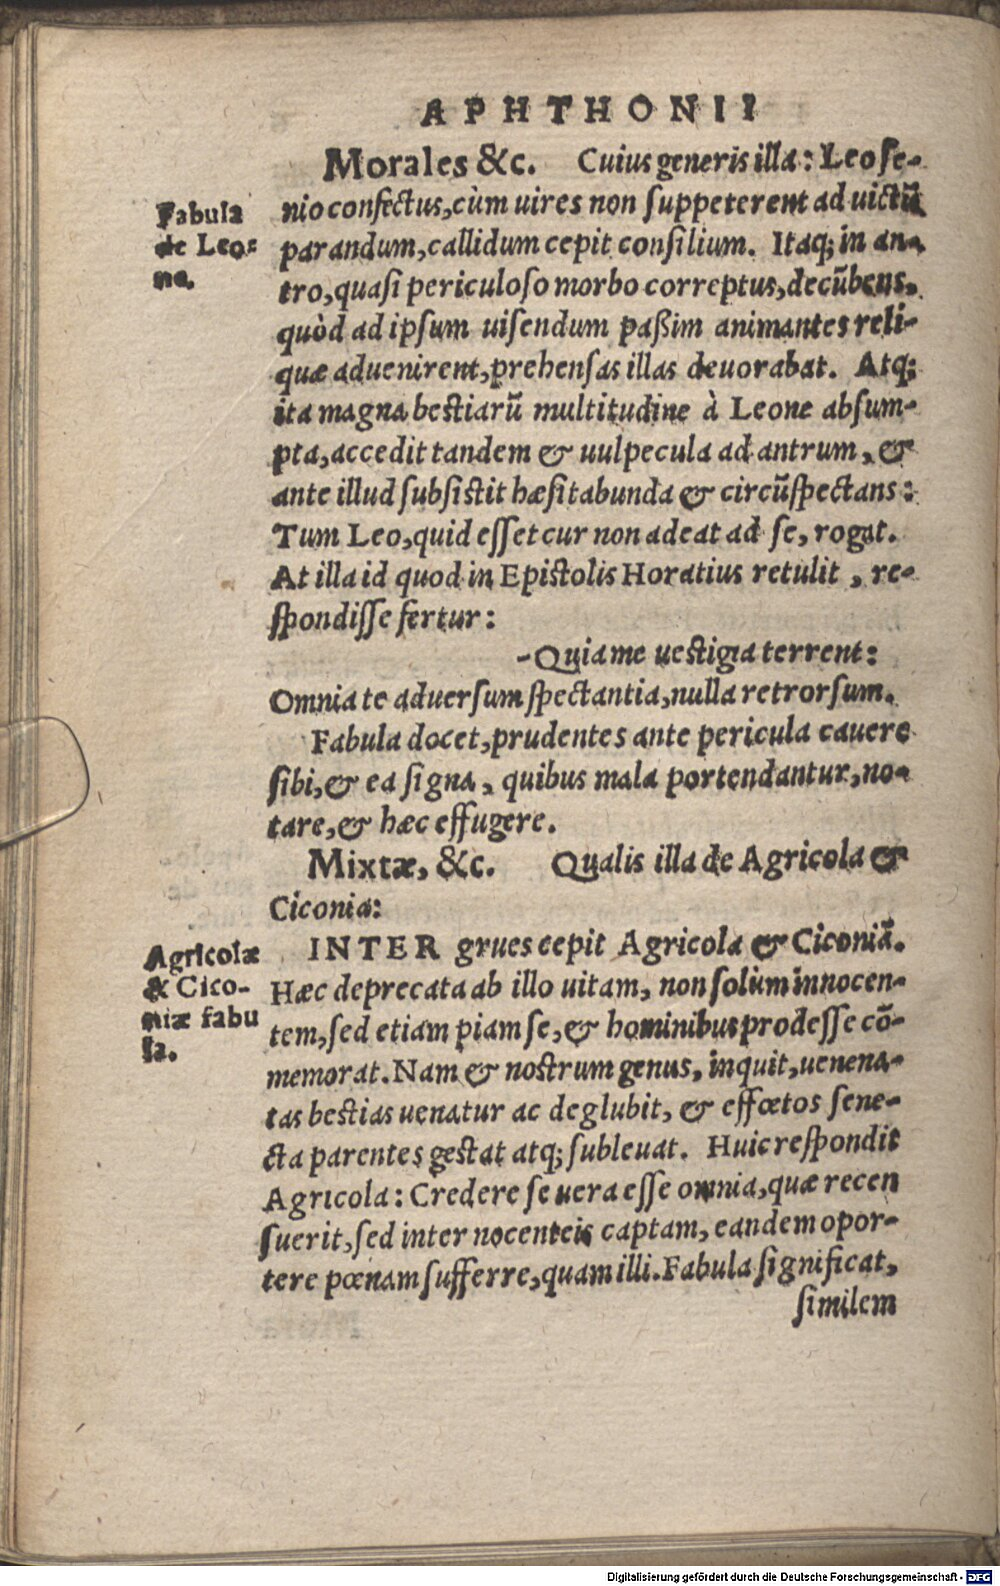 APHTHONII
Morales &c. Cuius generis illa: Leo ſe-
nio confectus, cùm uires non ſuppeterent ad uictũ
parandum, callidum cepit conſilium. Itaq; in an-
tro, quaſi periculoſo morbo correptus, decũbens,
quòd ad ipſum uiſendum paßim animantes reli-
quæ aduenirent, prehenſas illas deuorabat. Atq;
ita magna beſtiarũ multitudine à Leone abſum-
pta, accedit tandem & uulpecula ad antrum, &
ante illud ſubſiſtit hæſitabunda & circũſpectans:
Tum Leo, quid eſſet cur non adeat ad ſe, rogat.
At illa id quod in Epiſtolis Horatius retulit, re-
ſpondiſſe fertur:
-Quia me ueſtigia terrent:
Omnia te aduerſum ſpectantia, nulla retrorſum.
Fabula docet, prudentes ante pericula cauere
ſibi, & ea ſigna, quibus mala portendantur, no-
tare, & hæc effugere.
Mixtæ, &c. Qualis illa de Agricola &
Ciconia:
INTER grues cepit Agricola & Ciconiã.
Hæc deprecata ab illo uitam, non ſolùm innocen-
tem, ſed etiam piam ſe, & hominibus prodeſſe cõ-
memorat. Nam & noſtrum genus, inquit, uenena-
tas beſtias uenatur ac deglubit, & effœtos ſene-
cta parentes geſtat atq; ſubleuat. Huic reſpondit
Agricola: Credere ſe uera eſſe omnia, quæ recen
ſuerit, ſed inter nocenteis captam, eandem opor-
tere pœnam ſufferre, quam illi. Fabula ſignificat,
ſimilem
Fabula
de Leo-
ne.
Agricolæ
& Cico-
niæ fabu
la.
Digitalisierung gefördert durch die Deutsche Forschungsgemeinschaft - DFG